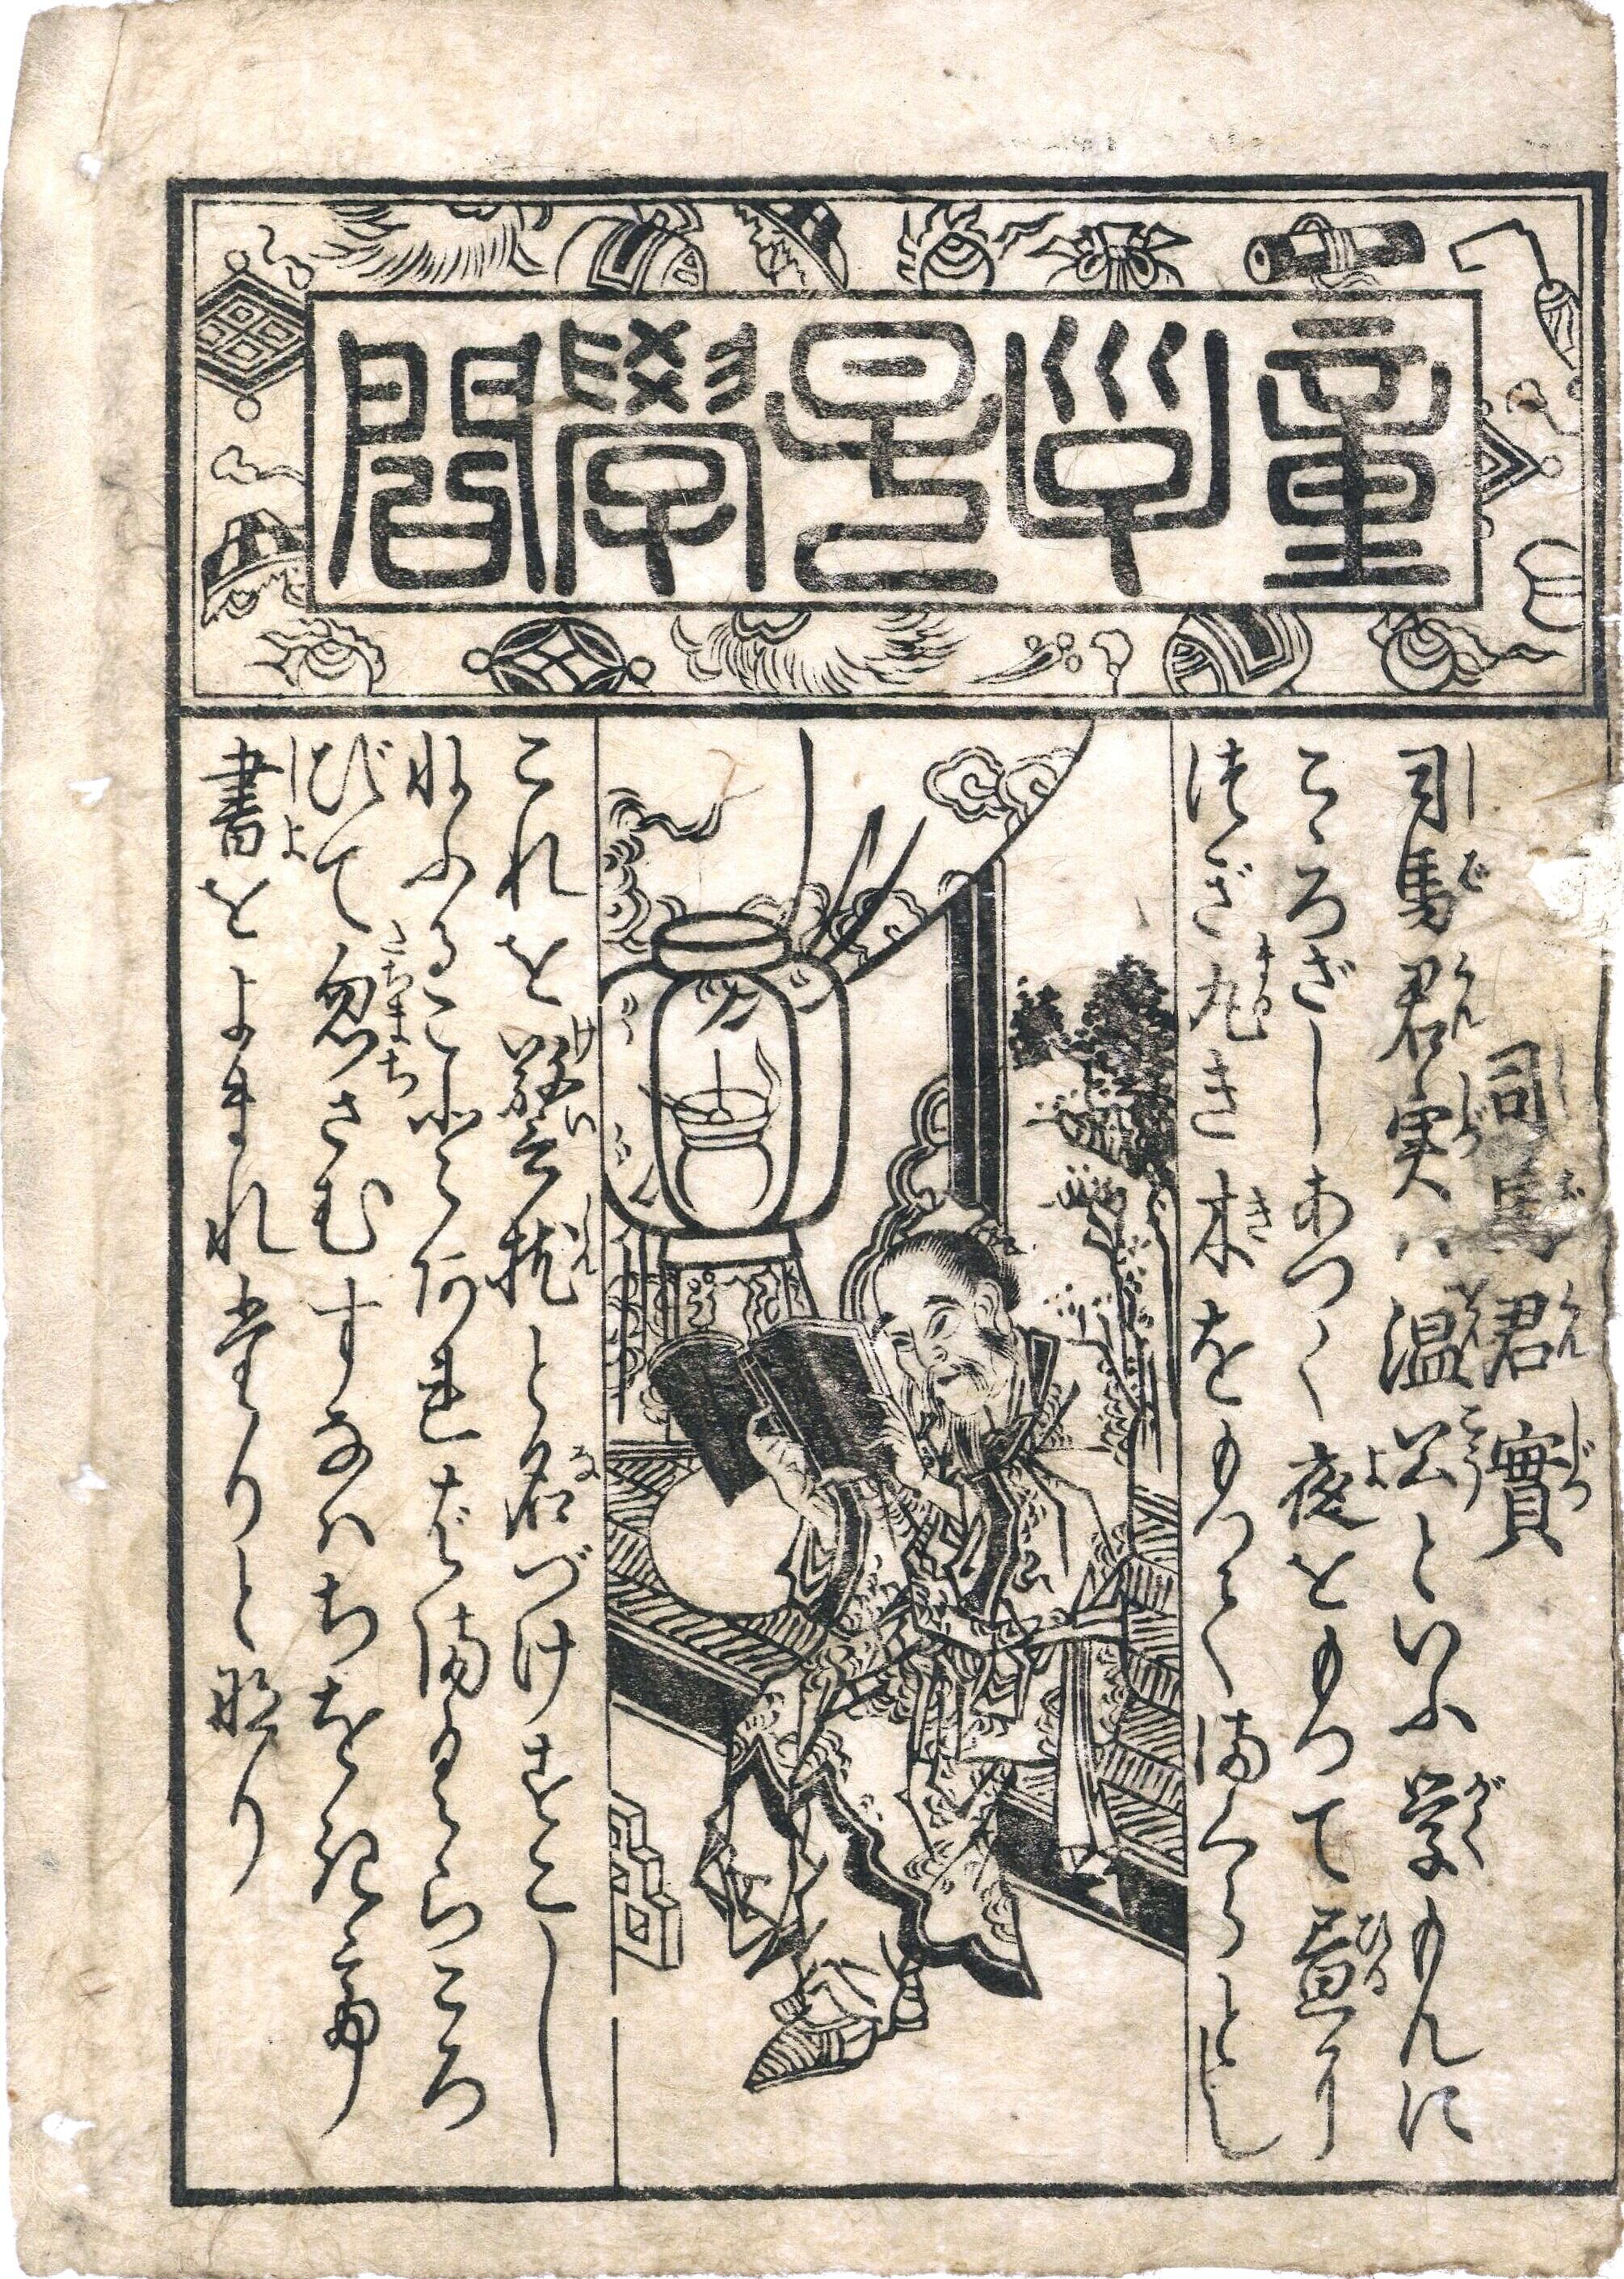 童學問
司馬君實
司馬君実ハ温公といふ学もんに
こゝろざしあつく夜をもつて昼に
つぎ丸き木をもつてまくらとし
これを警枕と名づけすこし
ねふることあればまくらころ
びて忽さむすなハちおきて
書をよまれたりとなり